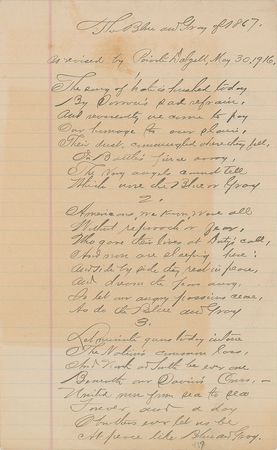 The Blue and Gray of 1867.
As revised by Private Dalzell, May 30, 1916.
The song of hate is hushed today
By Sorrow's sad refrain,
And reverently we come to pay
Our homage to our slain,
Their dust, commingled where they fell,
In Battle's fierce array,
The very angels cannot tell
Which were the Blue or Gray
2.
Americans, we know, were all
Without reproach or fear,
Who gave their lives at Duty's call,
And now are sleeping here:
And side by side they rest in peace,
And dream the years away,
So let our angry passions cease,
As do the Blue and Gray
3.
Let unite graves today intone
The Nation's common loss,
And North and South be ever one
Beneath our Savior's Cross,
United now from sea to sea
Forever and a day
O brothers ever let us be
At peace like Blue and Gray.